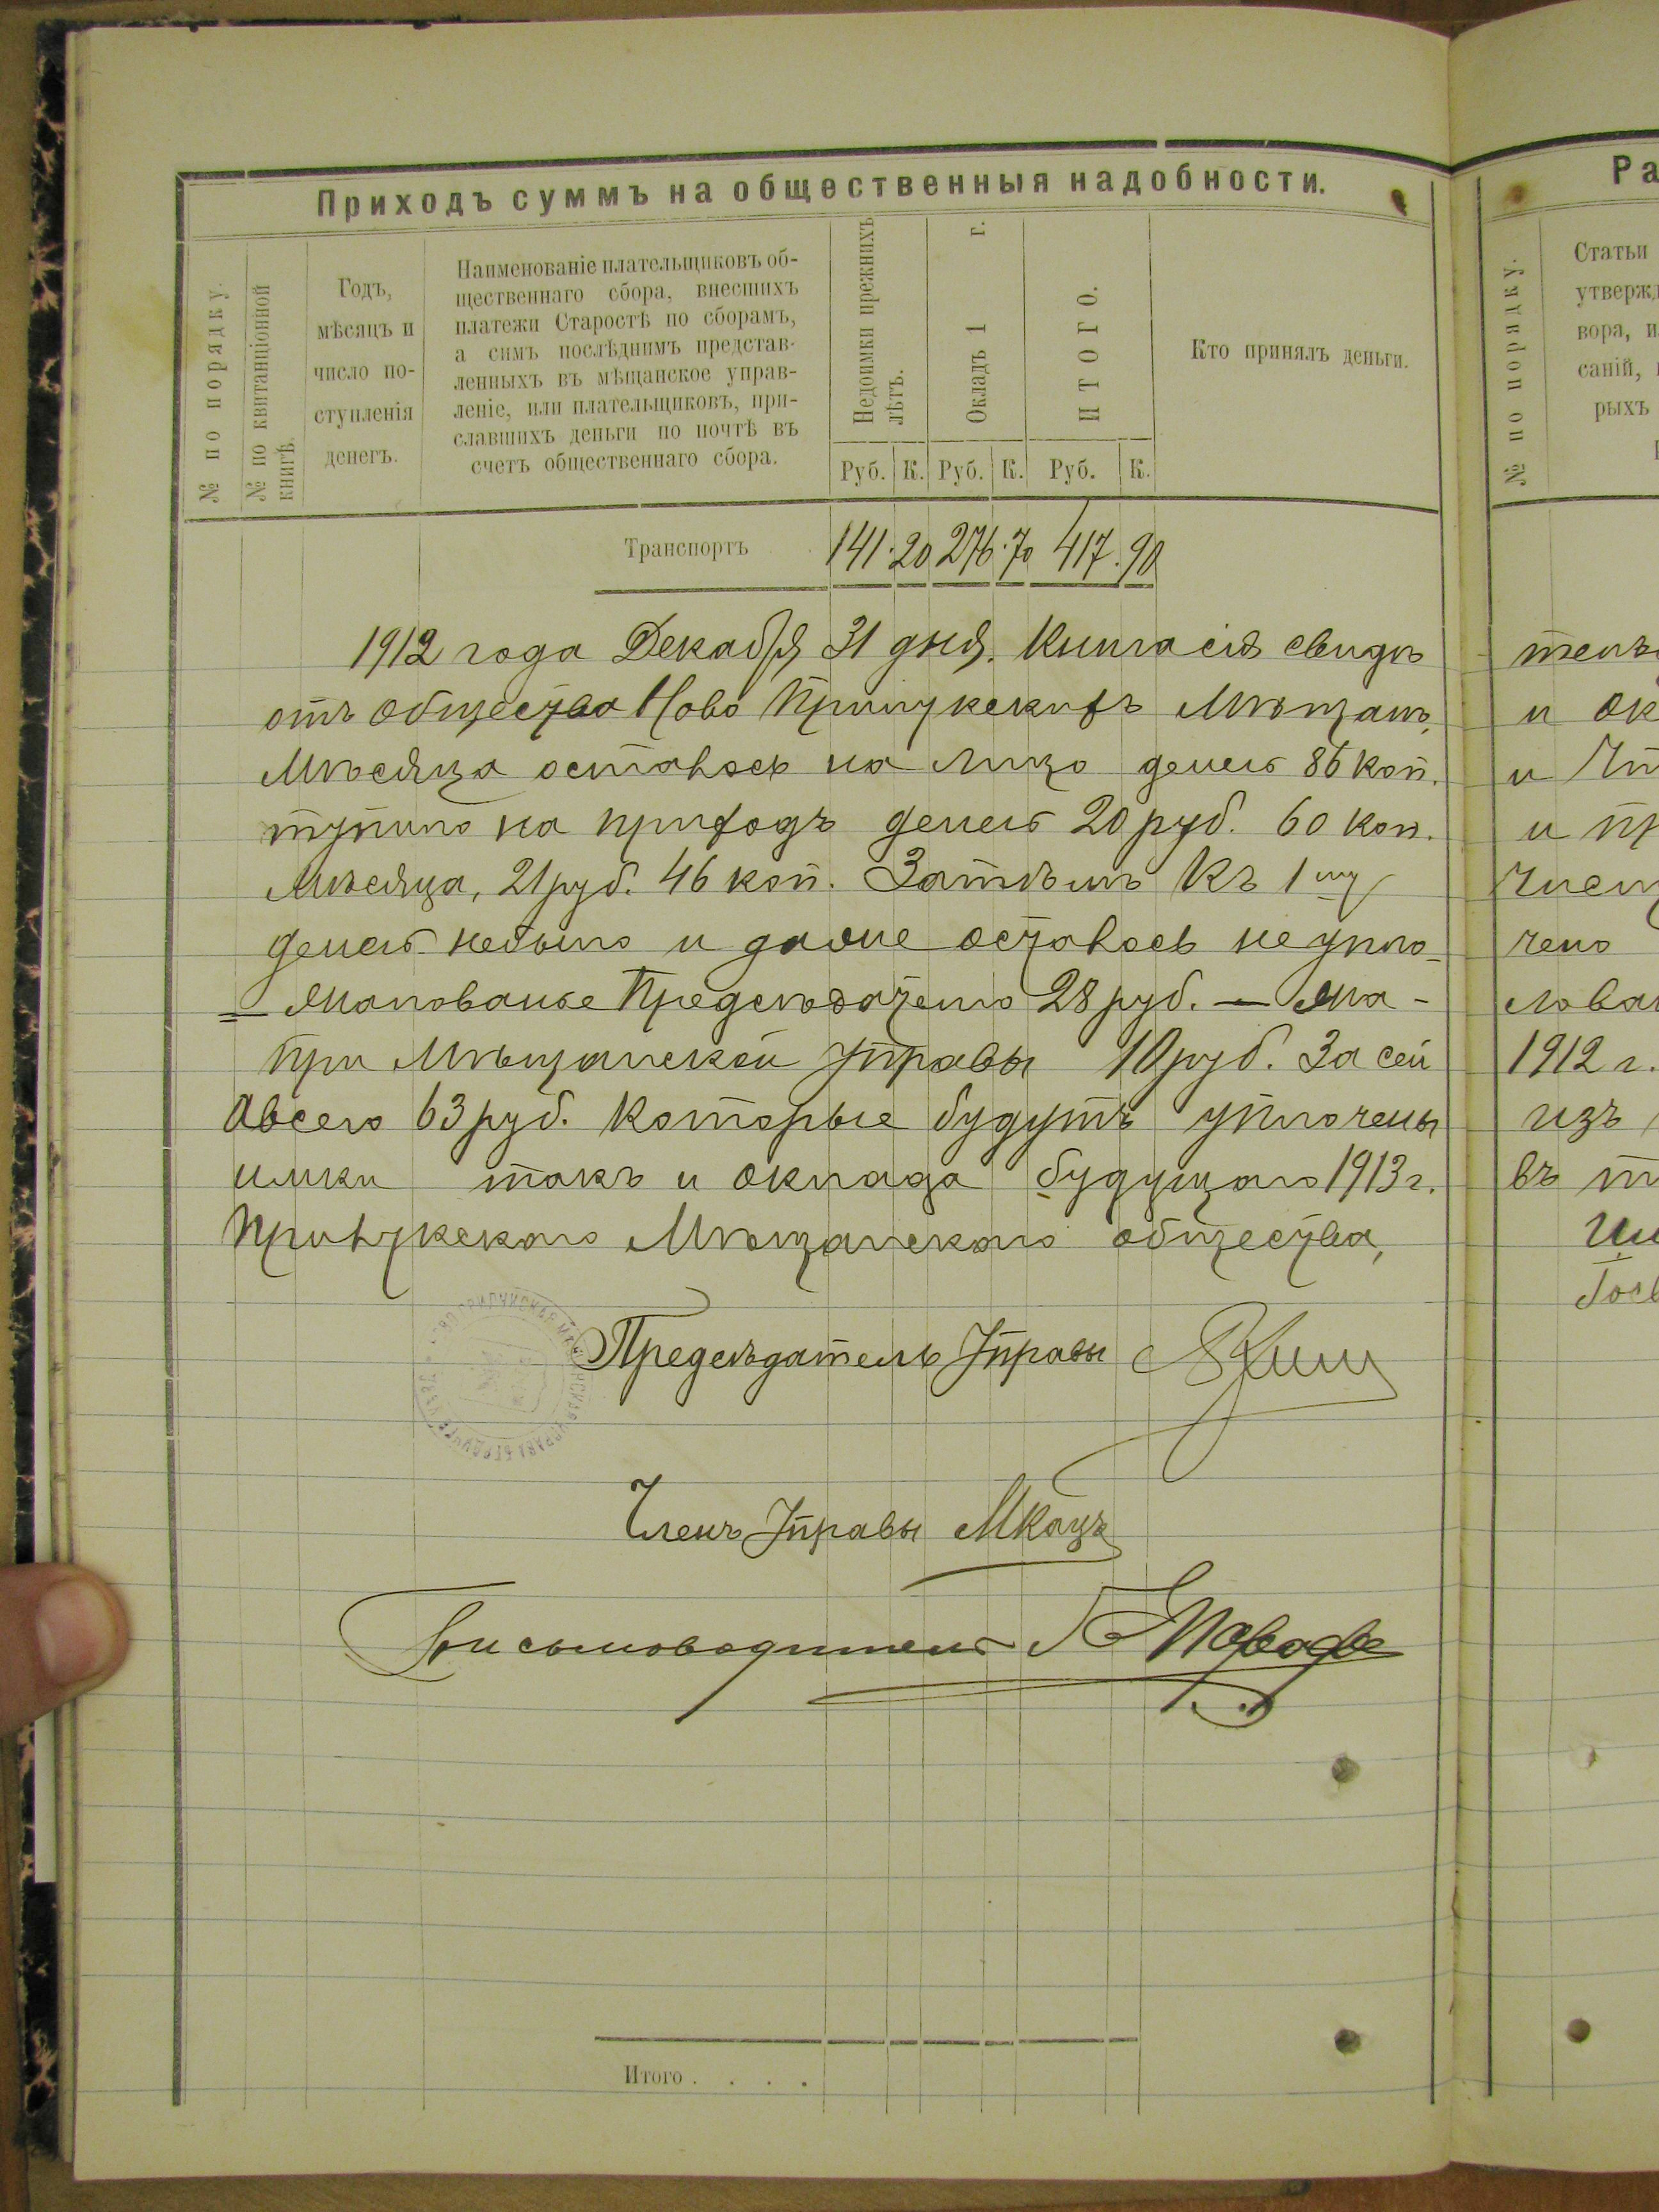 Приходъ суммъ на общественныя надобности.
№ по порядку.
№ по квитанціонной книгѣ.
Годъ,
мѣсяцъ и
число по-
ступленія
денегъ.
Наименованіе плательщиковъ об-
щественнаго сбора, внесшихъ
платежи Старостѣ по сборамъ,
а симъ послѣднимъ представ-
ленныхъ въ мѣщанское управ-
леніе, или плательщиковъ, при-
славшихъ деньги по почтѣ въ
счетъ общественнаго сбора.
Недоимки прежнихъ лѣтъ.
Окладъ 1 г.
ИТОГО.
Кто принялъ деньги.
Руб. К. Руб. К. Руб. К.
Транспортъ 141. 20 276. 70 417. 90
1912 года Декабря 31 дня. Книга сія свидѣ
отъ общества Ново Прилукскихъ Мѣщанъ,
Мѣсяца осталось на лицо денегъ 86 коп.
тупило на приходъ денегъ 20 руб. 60 коп.
Мѣсяца, 21 руб. 46 коп. Затѣмъ Къ 1му
денегъ небыло и далее осталось не упло-
= Жалованье Председателю 28 руб. — Жа-
при Мѣщанской Управы 10 руб. За сей
Авсего 63 руб. Которые будутъ уплочены
имки такъ и оклада будущаго 1913 г.
Прилукскаго Мѣщанскаго общества,
Председатель Управы
Членъ Управы МКацъ
Письмоводитель
Итого . . . .
Ра
№ по порядку.
Статьи
утвержд
вора, и
саній,
рыхъ
тель
и ок
и
и пр
Числ
чено
лован
1912 г.
изъ
въ т